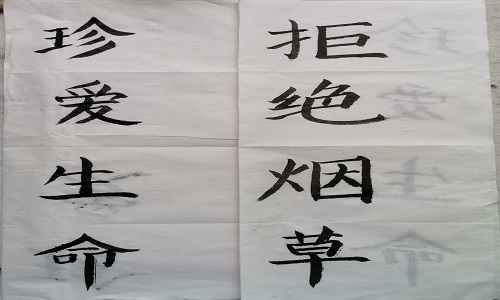 珍爱生命
拒绝烟草